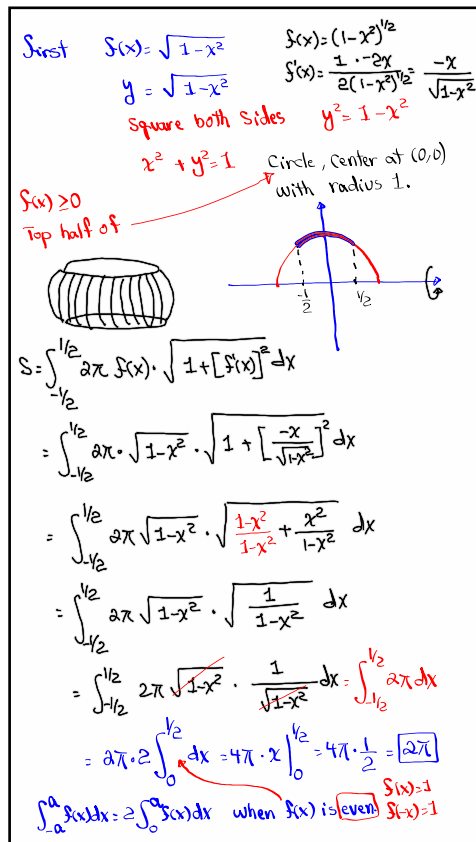 first f(x) = √(1-x²) f(x) = (1-x²)^(1/2)
y = √(1-x²) f'(x) = (1 · -2x)/(2(1-x²)^(1/2)) = -x/√(1-x²)
Square both sides y² = 1-x²
x² + y² = 1 Circle, center at (0,0)
with radius 1.
f(x) ≥ 0
Top half of
-1/2 1/2
S = ∫_{-1/2}^{1/2} 2π f(x) · √(1+[f'(x)]²) dx
= ∫_{-1/2}^{1/2} 2π · √(1-x²) · √(1 + [-x/√(1-x²)]²) dx
= ∫_{-1/2}^{1/2} 2π √(1-x²) · √((1-x²)/(1-x²) + x²/(1-x²)) dx
= ∫_{-1/2}^{1/2} 2π √(1-x²) · √(1/(1-x²)) dx
= ∫_{-1/2}^{1/2} 2π √(1-x²) · 1/√(1-x²) dx = ∫_{-1/2}^{1/2} 2π dx
= 2π·2 ∫_{0}^{1/2} dx = 4π · x |_{0}^{1/2} = 4π · 1/2 = 2π
∫_{-a}^{a} f(x)dx = 2∫_{0}^{a} f(x)dx when f(x) is even f(x)=1
f(-x)=1